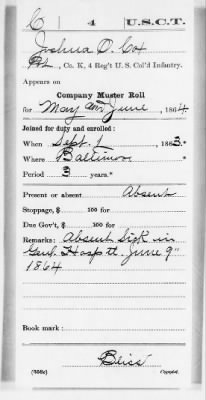 C | 4 | U.S.C.T.
Joshua D. Cox
Pvt, Co. K, 4 Reg't U. S. Col'd Infantry.
Appears on
Company Muster Roll
for May and June, 1864
Joined for duty and enrolled:
When Sept. 1, 1863.*
Where Baltimore *
Period 3 years.*
Present or absent Absent
Stoppage, $ 100 for
Due Gov't, $ 100 for
Remarks: Absent Sick in
Genl. Hospitl. June 9"
1864
Book mark:
Bliss
(858c) Copyist.